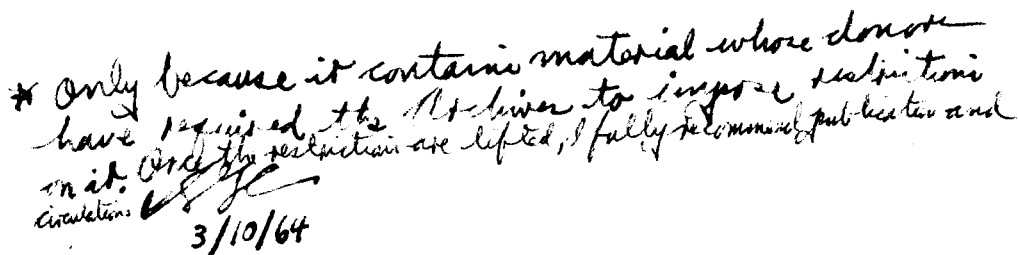 * Only because it contains material whose donors
have required the Archives to impose restrictions
on it. Once the restriction are lifted, I fully recommend publication and
circulation.
3/10/64